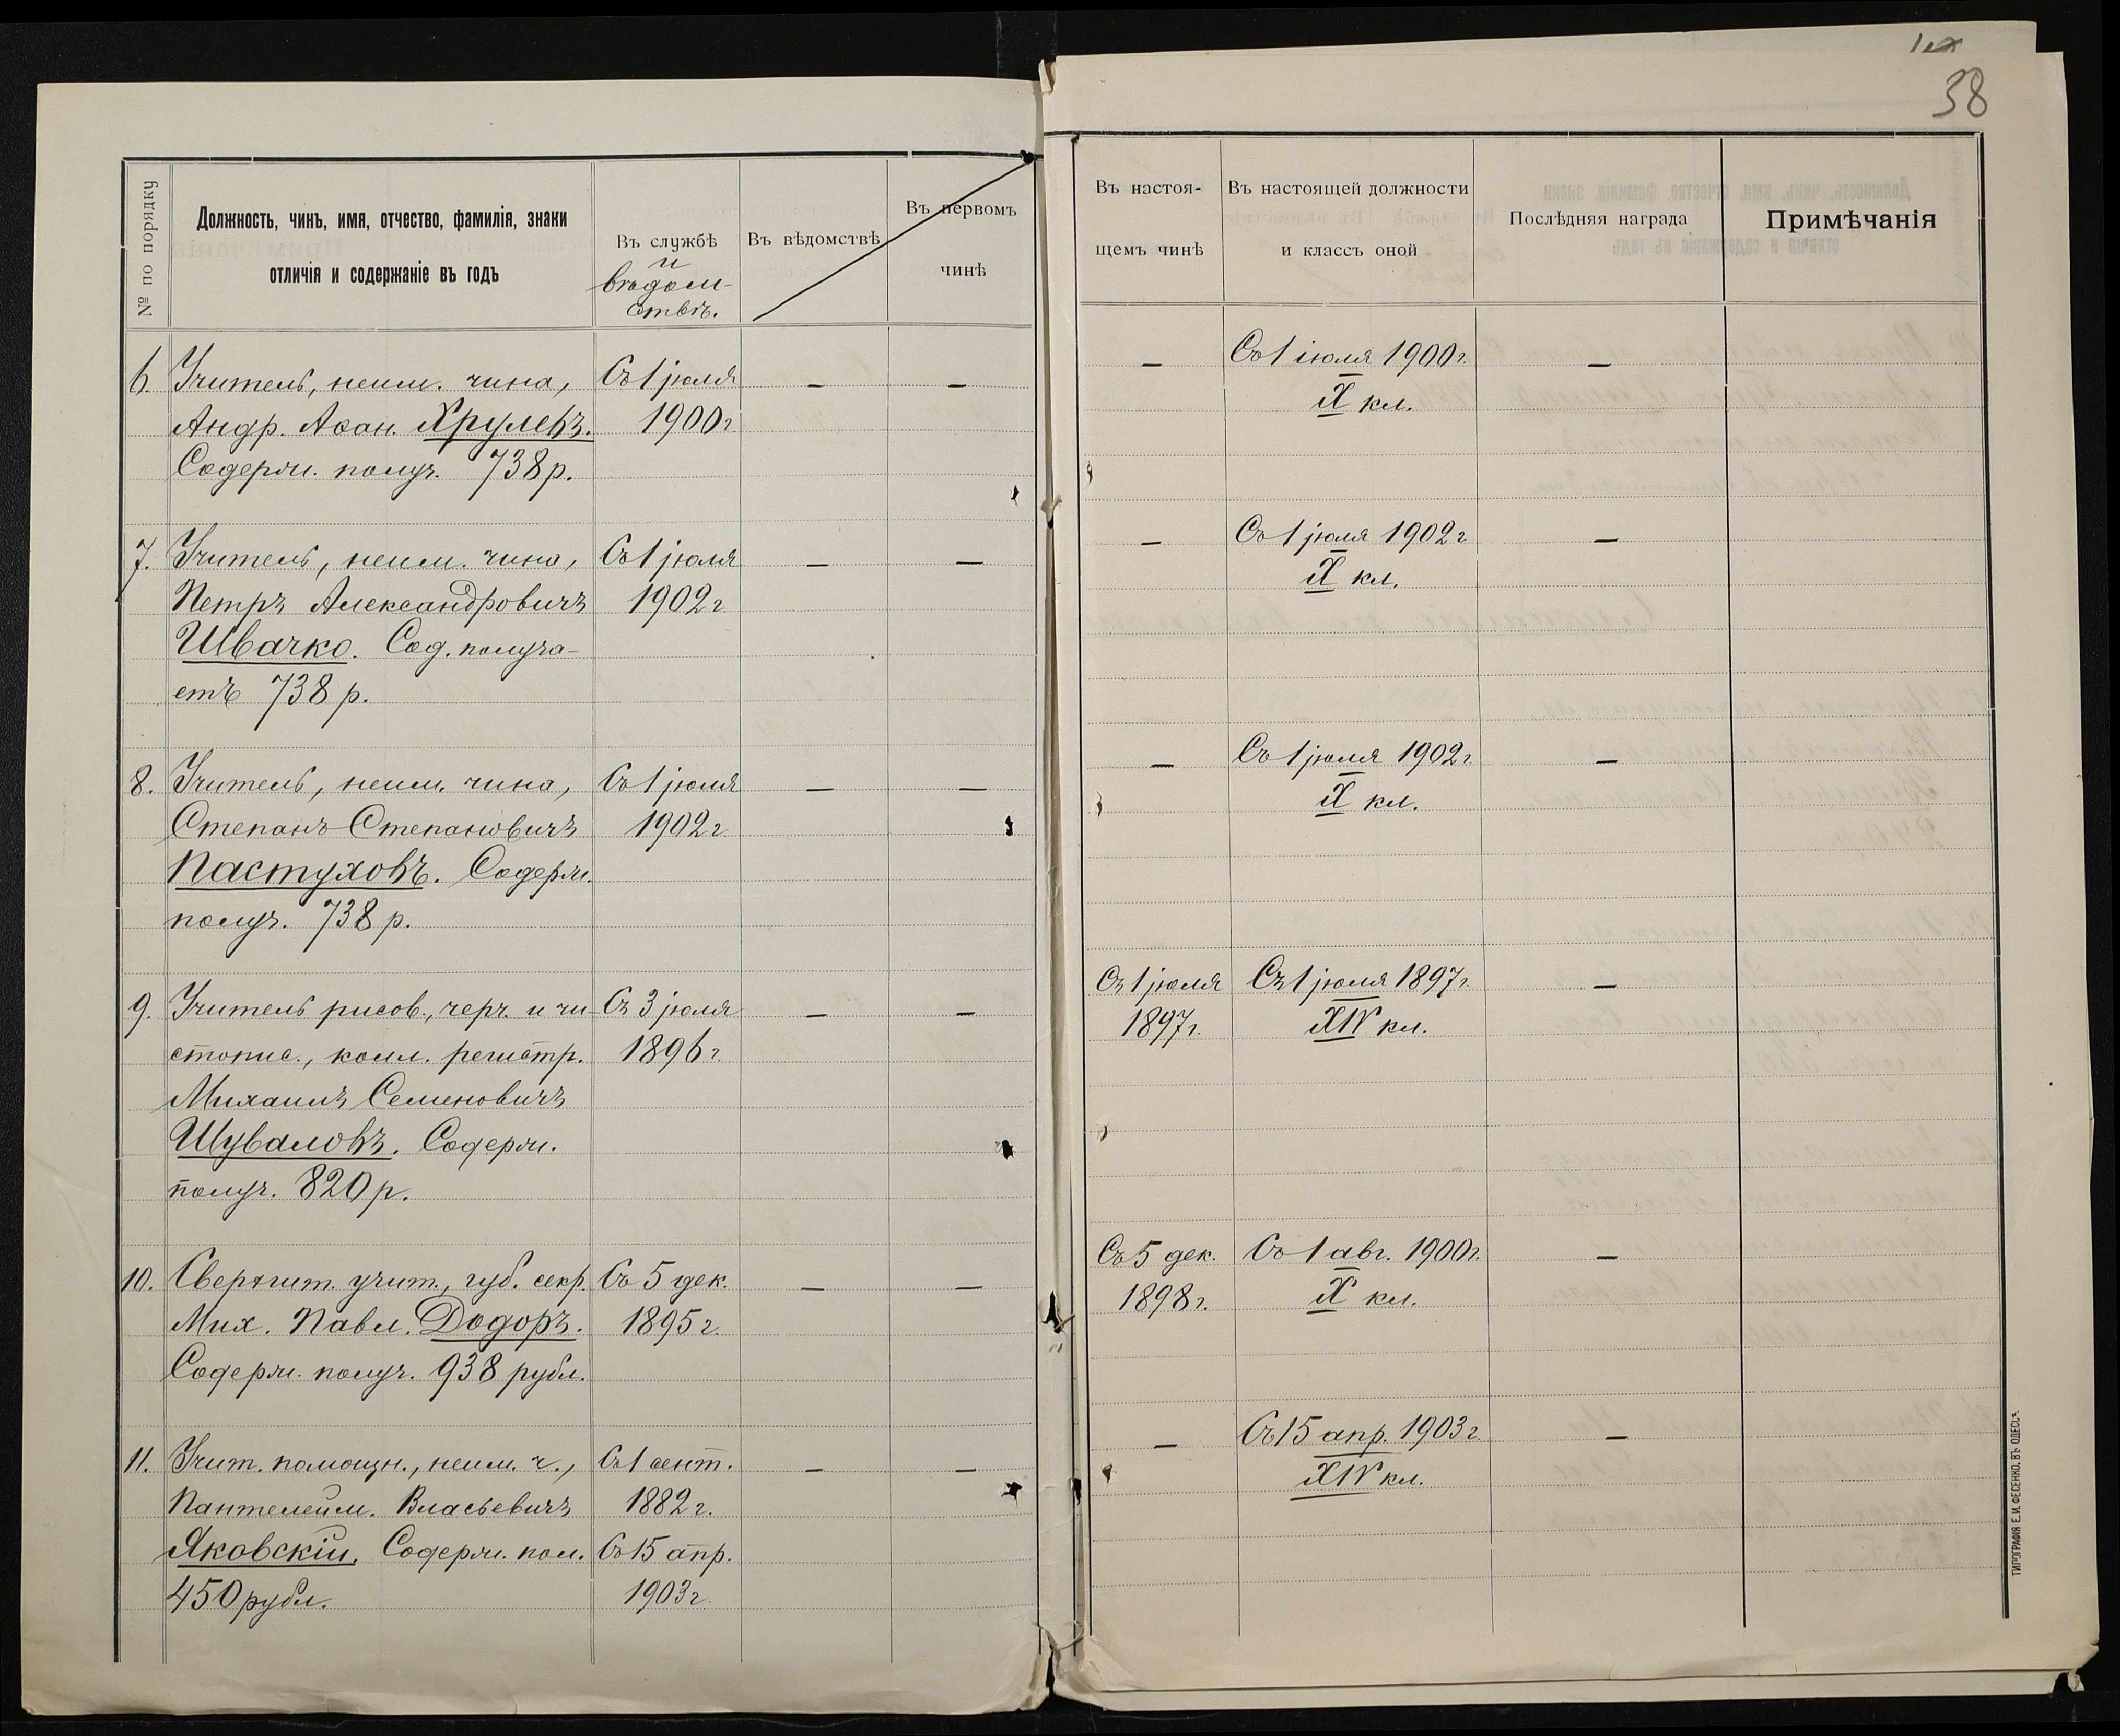 38
№ по порядку
Должность, чинъ, имя, отчество, фамилія, знаки
отличія и содержаніе въ годъ
Въ службѣ
и
вѣдом-
ствѣ.
Въ вѣдомствѣ
Въ первомъ
чинѣ
Въ настоя-
щемъ чинѣ
Въ настоящей должности
и классъ оной
Послѣдняя награда
Примѣчанія
6. Учитель, неим. чина, Съ 1 іюля — —
Андр. Афан. Хрулевъ. 1900 г
Содерж. получ. 738 р.
— Съ 1 іюля 1900 г. —
X кл.
7. Учитель, неим. чина, Съ 1 іюля — —
Петръ Александровичъ 1902 г
Швачко. Сод. получа-
етъ 738 р.
— Съ 1 іюля 1902 г —
X кл.
8. Учитель, неим. чина, Съ 1 іюля — —
Степанъ Степановичъ 1902 г
Пастуховъ. Содерж.
получ. 738 р.
— Съ 1 іюля 1902 г. —
X кл.
9. Учитель рисов., черч. и чи- Съ 3 іюля — —
стопис., колл. регистр. 1896 г.
Михаилъ Семеновичъ
Шуваловъ. Содерж.
получ. 820 р.
Съ 1 іюля Съ 1 іюля 1897 г. —
1897 г. XIV кл.
10. Сверхшт. учит., губ. секр. Съ 5 дек. — —
Мих. Павл. Додоръ. 1895 г.
Содерж. получ. 938 рубл.
Съ 5 дек. Съ 1 авг. 1900 г. —
1898 г. X кл.
11. Учит. помощн., неим. ч., Съ 1 сент. — —
Пантелейм. Власьевичъ 1882 г.
Яковскій. Содерж. пол. Съ 15 апр.
450 рубл. 1903 г.
— Съ 15 апр. 1903 г. —
XIV кл.
ТИПОГРАФІЯ Е. И. ФЕСЕНКО, ВЪ ОДЕССѢ.